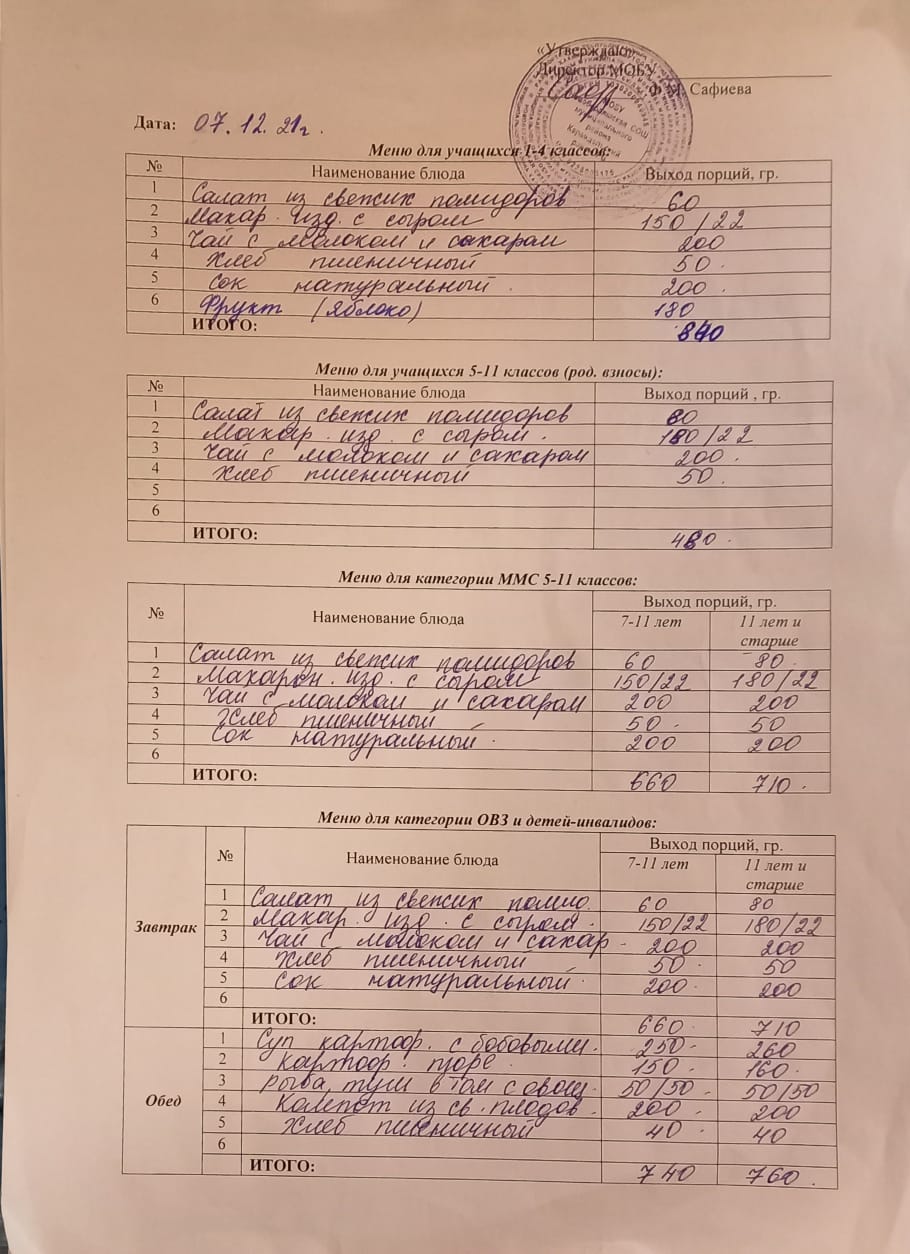 «Утверждаю»
Директор МОБУ
Ф. М. Сафиева
Дата: 07.12.21г.
Меню для учащихся 1-4 классов:
№ Наименование блюда Выход порций, гр.
1 Салат из свежих помидоров 60
2 Макар. изд. с сыром 150/22
3 Чай с молоком и сахаром 200
4 Хлеб пшеничный 50.
5 Сок натуральный. 200.
6 Фрукт (яблоко) 180
ИТОГО: 840
Меню для учащихся 5-11 классов (род. взносы):
№ Наименование блюда Выход порций , гр.
1 Салат из свежих помидоров 80
2 Макар. изд. с сыром. 180/22
3 Чай с молоком и сахаром 200.
4 Хлеб пшеничный 50.
5
6
ИТОГО: 480.
Меню для категории ММС 5-11 классов:
№ Наименование блюда Выход порций, гр.
7-11 лет 11 лет и старше
1 Салат из свежих помидоров 60 80.
2 Макарон. изд. с сыром 150/22 180/22
3 Чай с молоком и сахаром 200 200
4 Хлеб пшеничный 50. 50
5 Сок натуральный. 200 200
6
ИТОГО: 660 710.
Меню для категории ОВЗ и детей-инвалидов:
№ Наименование блюда Выход порций, гр.
7-11 лет 11 лет и старше
Завтрак
1 Салат из свежих помид. 60 80
2 Макар. изд. с сыром. 150/22 180/22
3 Чай с молоком и сахар- 200 200
4 Хлеб пшеничный 50. 50
5 Сок натуральный. 200. 200
6
ИТОГО: 660. 710
Обед
1 Суп картоф. с бобовыми. 250. 260
2 Картоф. пюре 150. 160.
3 Рыба туш в том с овощ. 50/50. 50/50
4 Компот из св. плодов. 200. 200
5 Хлеб пшеничный 40. 40
6
ИТОГО: 740 760.